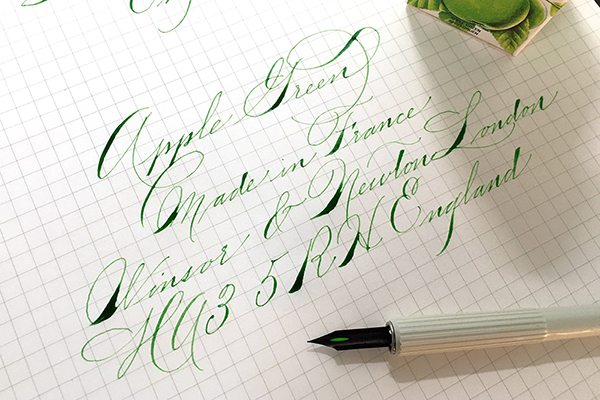 Apple Green
Made in France
Winsor & Newton London
HA3 5RH England